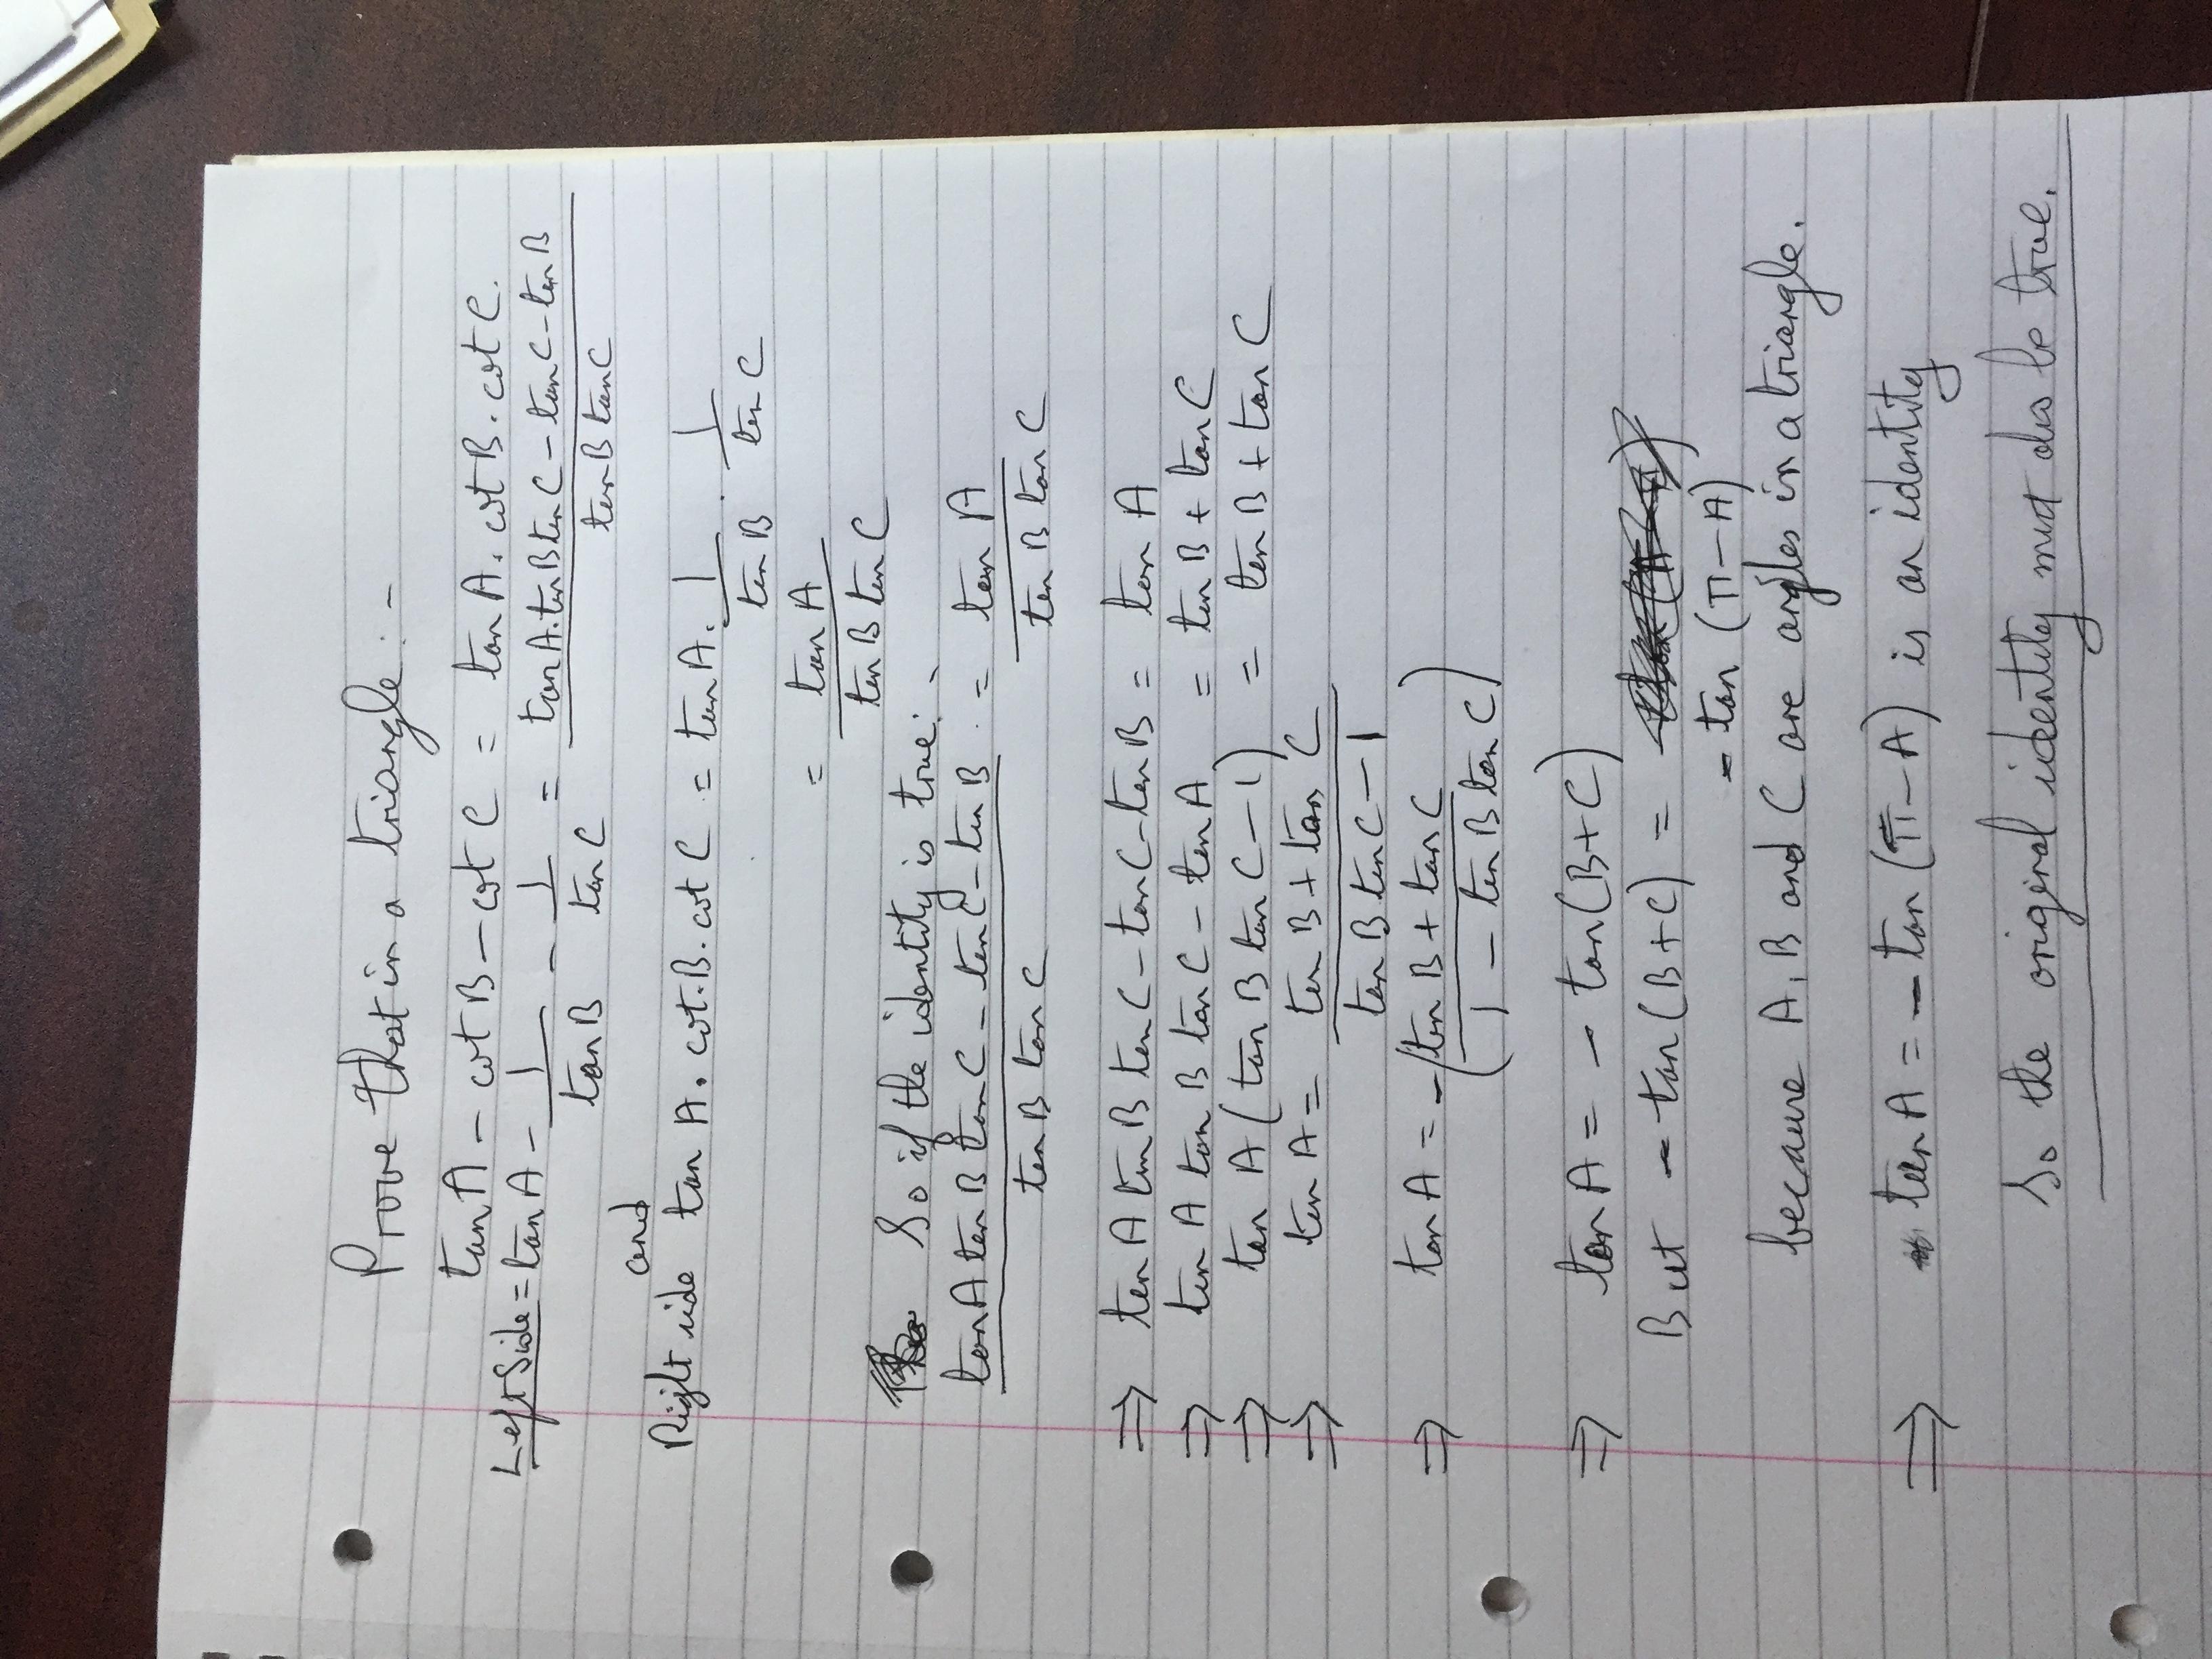 Prove that in a triangle :-
tan A - cot B - cot C = tan A. cot B. cot C.
Left Side = tan A - 1/tan B - 1/tan C = (tan A. tan B tan C - tan C - tan B)/(tan B tan C)
and
Right side tan A. cot B. cot C = tan A. 1/tan B . 1/tan C
= tan A/(tan B tan C)
So if the identity is true:-
(tan A tan B tan C - tan C - tan B)/(tan B tan C) = tan A/(tan B tan C)
⇒ tan A tan B tan C - tan C - tan B = tan A
⇒ tan A tan B tan C - tan A = tan B + tan C
⇒ tan A (tan B tan C - 1) = tan B + tan C
⇒ tan A = (tan B + tan C)/(tan B tan C - 1)
⇒ tan A = -((tan B + tan C)/(1 - tan B tan C))
⇒ tan A = - tan (B+C)
But - tan (B+C) =
- tan (π - A)
because A, B and C are angles in a triangle.
⇒ tan A = - tan (π - A) is an identity
So the original identity must also be true.